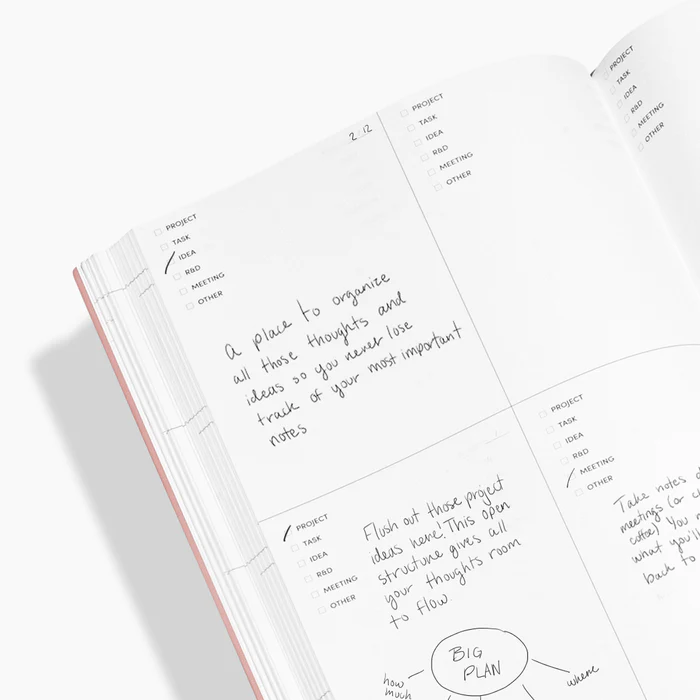 2.12
PROJECT
TASK
IDEA
R&D
MEETING
OTHER
A place to organize
all those thoughts and
ideas so you never lose
track of your most important
notes
PROJECT
TASK
IDEA
R&D
MEETING
OTHER
PROJECT
TASK
IDEA
R&D
MEETING
OTHER
PROJECT
TASK
IDEA
R&D
MEETING
OTHER
Flush out those project
ideas here! This open
structure gives all
your thoughts room
to flow.
BIG
PLAN
how
much
where
PROJECT
TASK
IDEA
R&D
MEETING
OTHER
Take notes
meetings (or
coffee) You
what you'll
back to